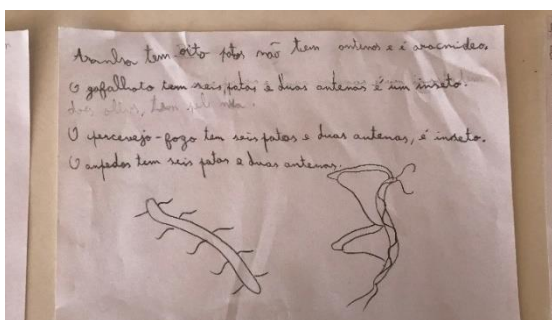 Aranha tem oito patas não tem antenas e é aracnídeo.
O gafalhoto tem seis patas e duas antenas é um inseto.
O percevejo-fogo tem seis patas e duas antenas, é inseto.
O anfedos tem seis patas e duas antenas.